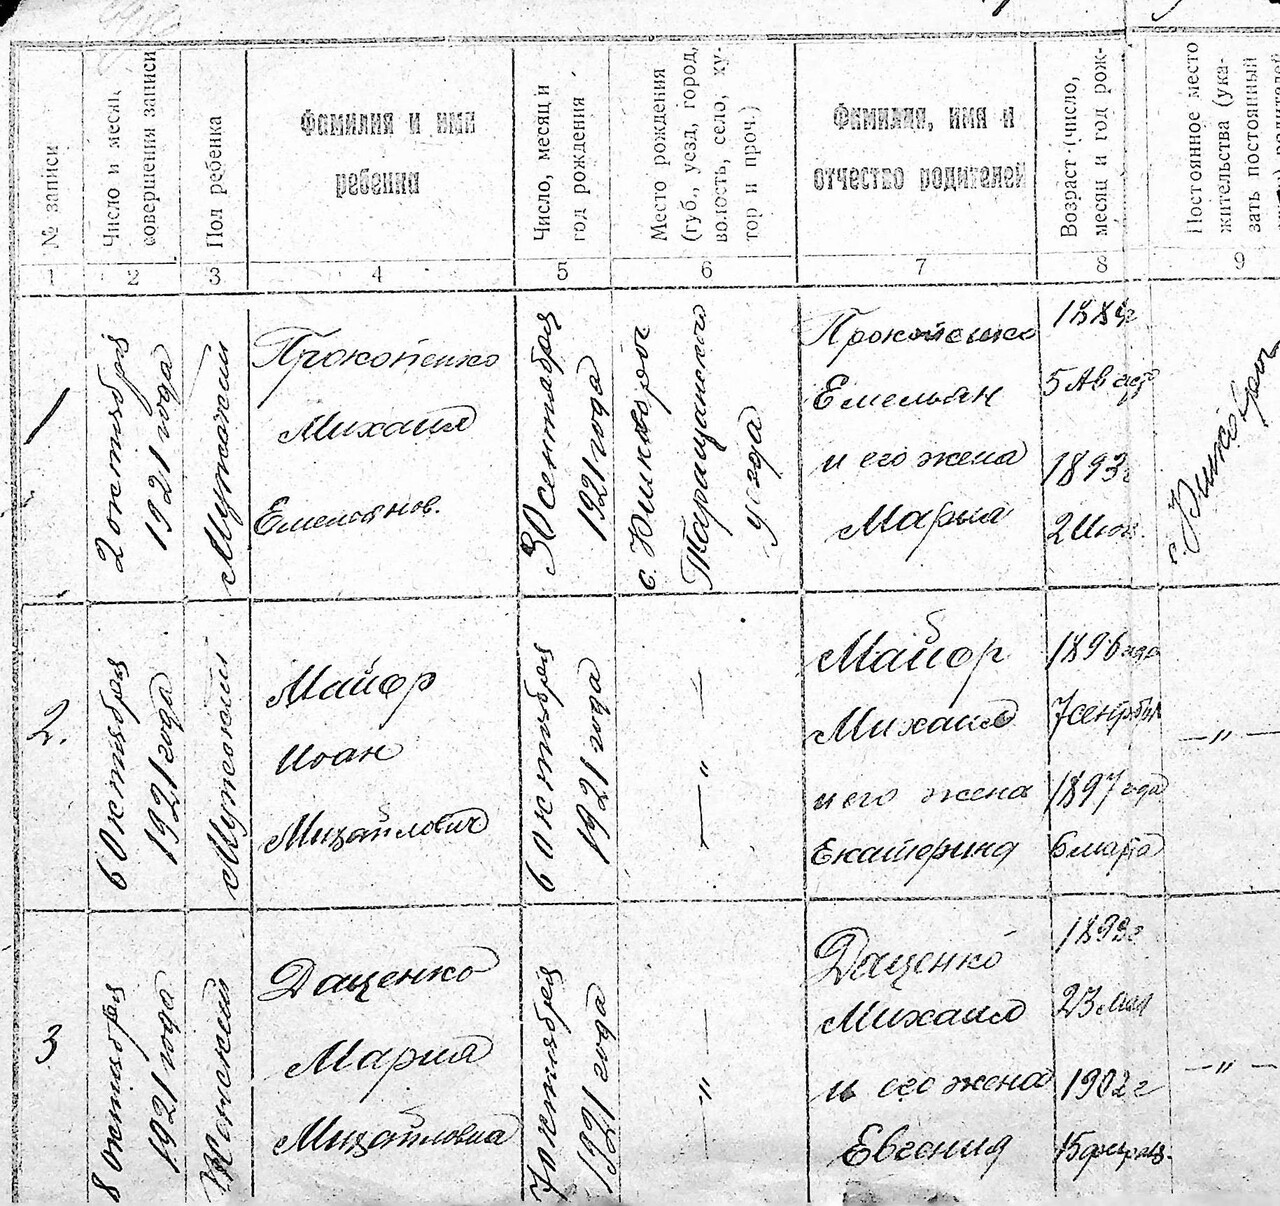 № записи
Число и месяц
совершения записи
Пол ребенка
Фамилия и имя
ребенка
Число, месяц и
год рождения
Место рождения
(губ., уезд, город,
волость, село, ху-
тор и проч.)
Фамилия, имя и
отчество родителей
Возраст (число,
месяц и год рож-
Постоянное место
жительства (ука-
зать постоянный
1
2
3
4
5
6
7
8
9
1
2 октября
1921 года
Мужской
Прокопенко
Михаил
Емельянов.
30 сентября
1921 года
с. Юшков рог
Таращанского
уезда
Прокопенко
Емельян
и его жена
Мария
5 Август
1893г
2 Июн.
с. Юшков рог
2.
6 Октября
1921 года
Мужской
Майор
Иоан
Михайлович
6 октября
1921 года
— „ —
Майор
Михаил
и его жена
Екатерина
1896 года
7 сентября
1897 года
6 марта
— „ —
3
8 октября
1921 года
Женский
Даценко
Мария
Михайловна
7 октября
1921 года
— „ —
Даценко
Михаил
и его жена
Евгения
23 мая
1902 г
— „ —